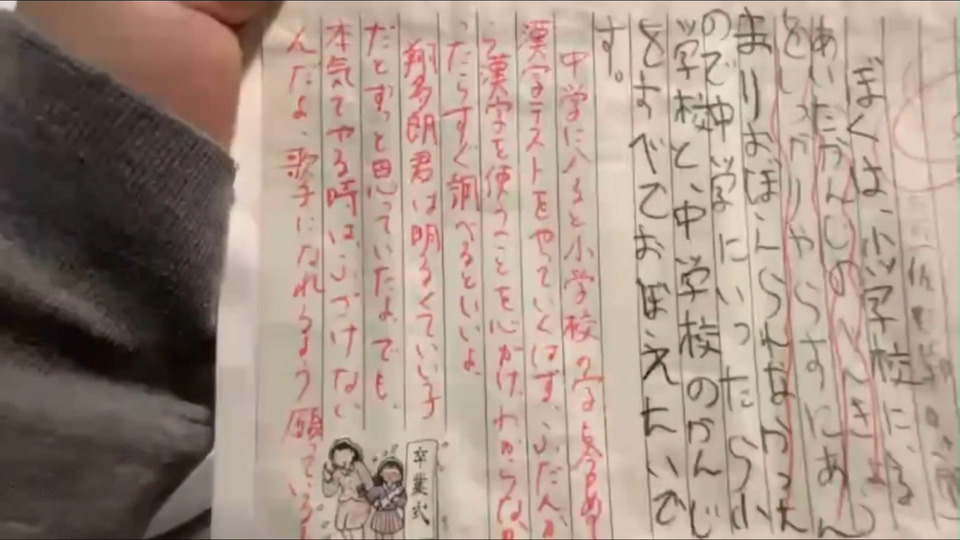 ぼくは、小学校にいる
あいだかんじのべんきょう
をしっかりやらずにあん
まりおぼえられなかった
ので中学にいったら小
学校と、中学校のかんじ
をすべておぼえたいで
す。
中学に入ると小学校の字も含めて
漢字テストをやっていくはず。ふだんか
ら漢字を使うことを心がけ、わからなか
ったらすぐ調べるといいよ。
翔多朗君は明るくていい子
だとずっと思っていたよ。でも、
本気でやる時は、ふざけない
んだよ、歌手になれるよう願っている
卒業式